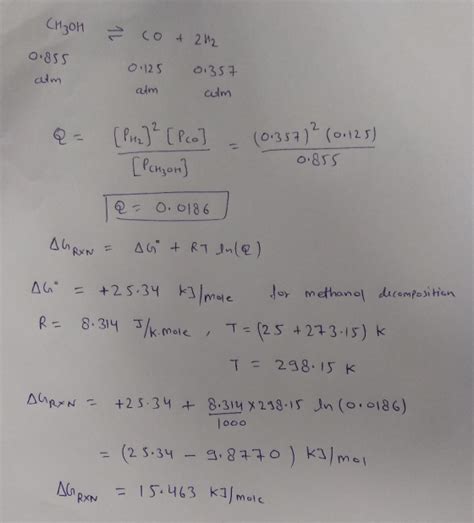 CH3OH ⇌ CO + 2H2
0.855 atm 0.125 atm 0.357 atm
Q = [PH2]² [PCO] / [PCH3OH] = (0.357)² (0.125) / 0.855
Q = 0.0186
ΔGRXN = ΔG° + RT ln(Q)
ΔG° = +25.34 KJ/mole for methanol decomposition
R = 8.314 J/K.mole , T = (25 + 273.15) K
T = 298.15 K
ΔGRXN = +25.34 + 8.314/1000 × 298.15 ln (0.0186)
= (25.34 - 9.8770) KJ/mol
ΔGRXN = 15.463 KJ/mole